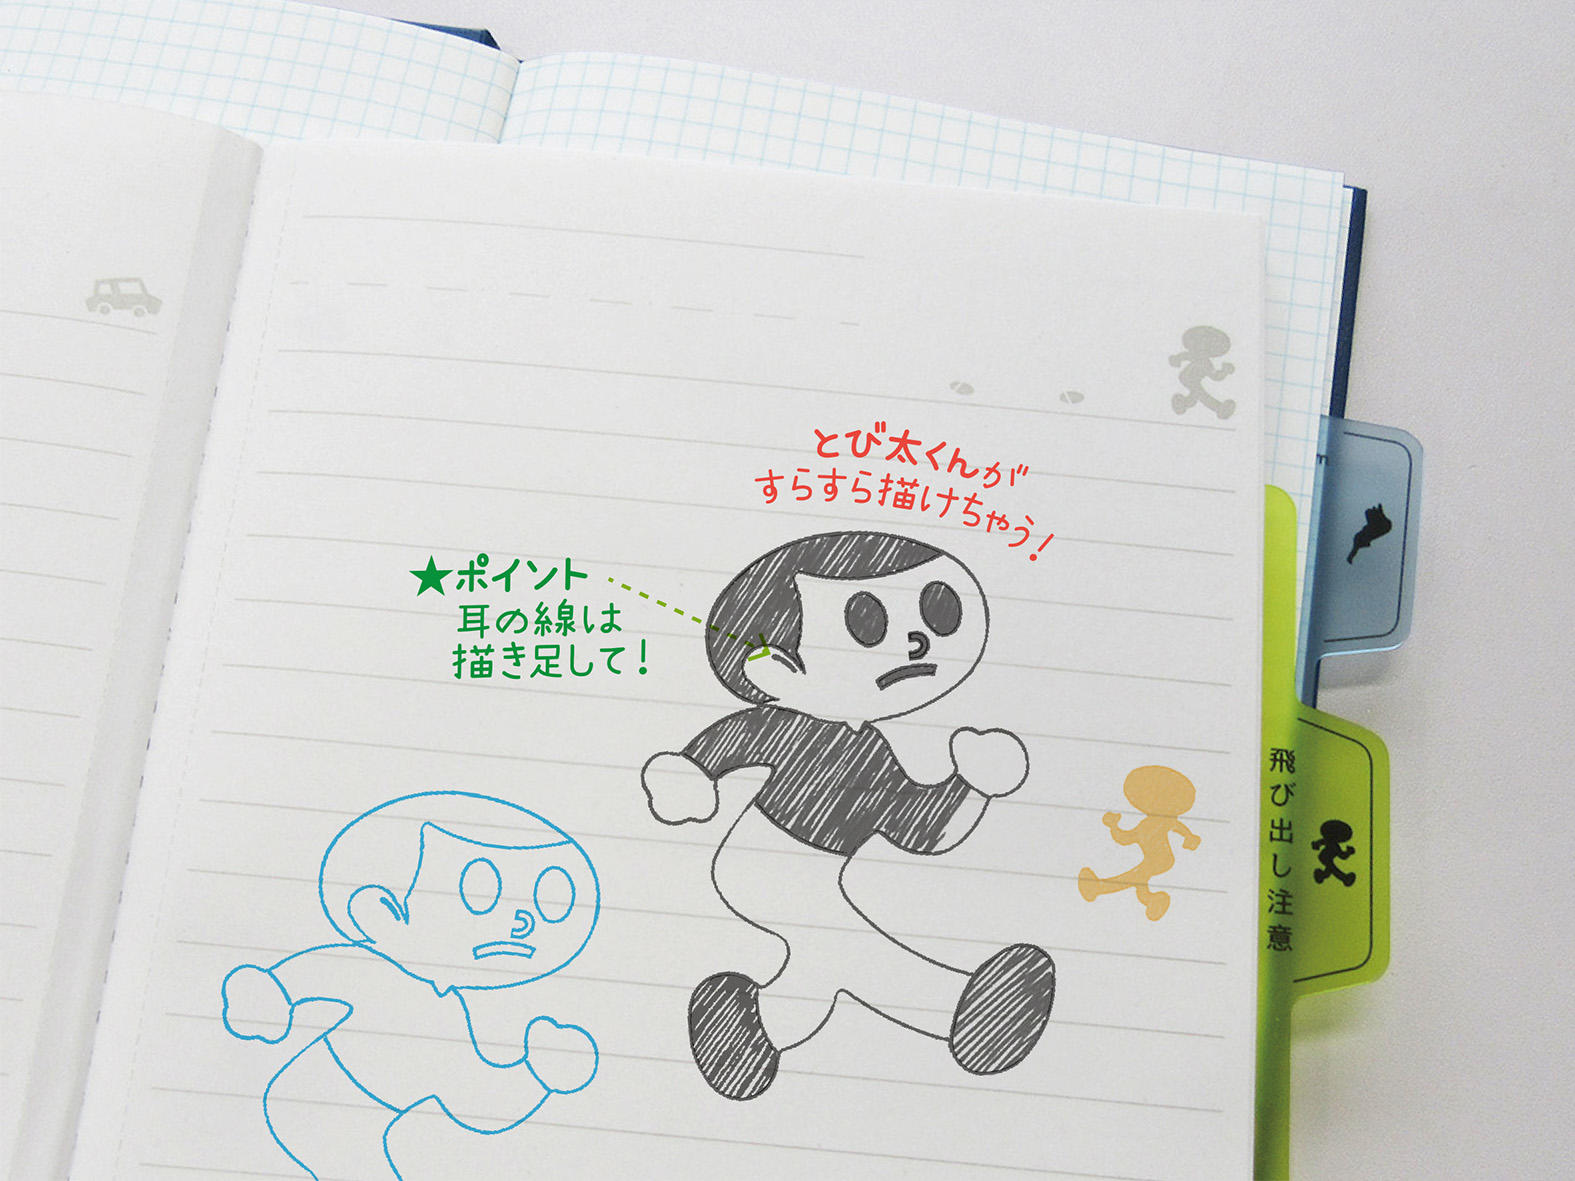 とび太くんが
すらすら描けちゃう!
★ポイント
耳の線は
描き足して!
飛び出し注意